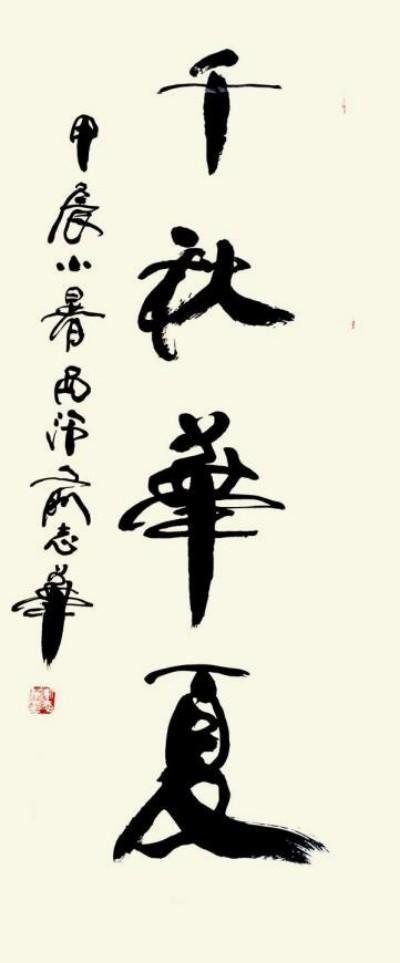 千秋華夏
甲辰小暑西沛俞志華